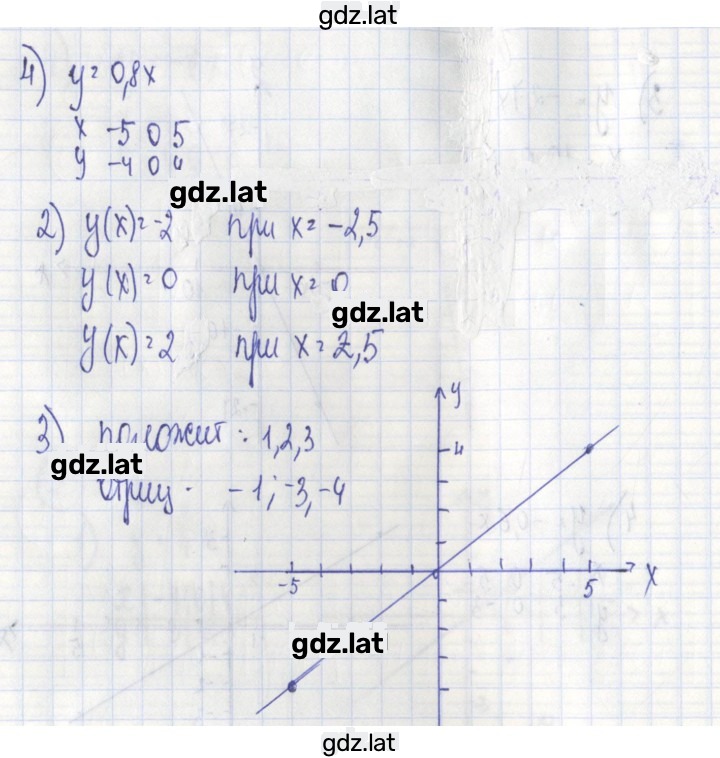 gdz.lat
4) y = 0,8x
x -5 0 5
y -4 0 4
gdz.lat
2) y(x) = -2 при x = -2,5
y(x) = 0 при x = 0
gdz.lat
y(x) = 2 при x = 2,5
y
3) положит : 1,2,3
4
gdz.lat
отриц - -1; -3, -4
-5 0 5 x
gdz.lat
gdz.lat